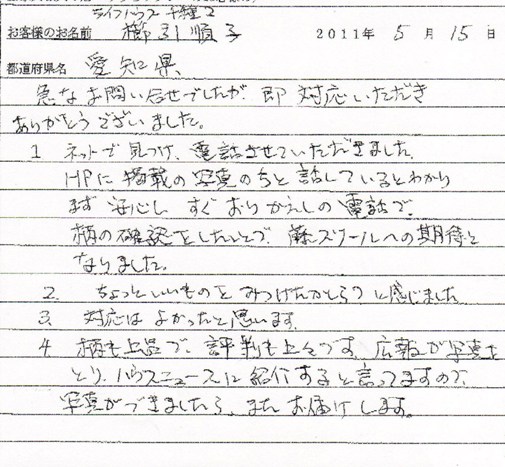 ライフハウス 千種2
お客様のお名前 櫛引順子 2011年 5月 15日
都道府県名 愛知県
急なお問い合せでしたが、即対応いただき
ありがとうございました。
1 ネットで見つけ、電話させていただきました。
HPに掲載の写真の方と話しているとわかり
まず安心し すぐおりかえしの電話で、
柄の確認をしたことで、 スクールへの期待と
なりました。
2. ちょっといいものをみつけたかしら?と感じました
3. 対応はよかったと思います。
4 柄も上品で、評判も上々です。広報が写真を
とり、ハウスニュースに紹介すると言ってますので、
写真ができましたら、またお届けします。